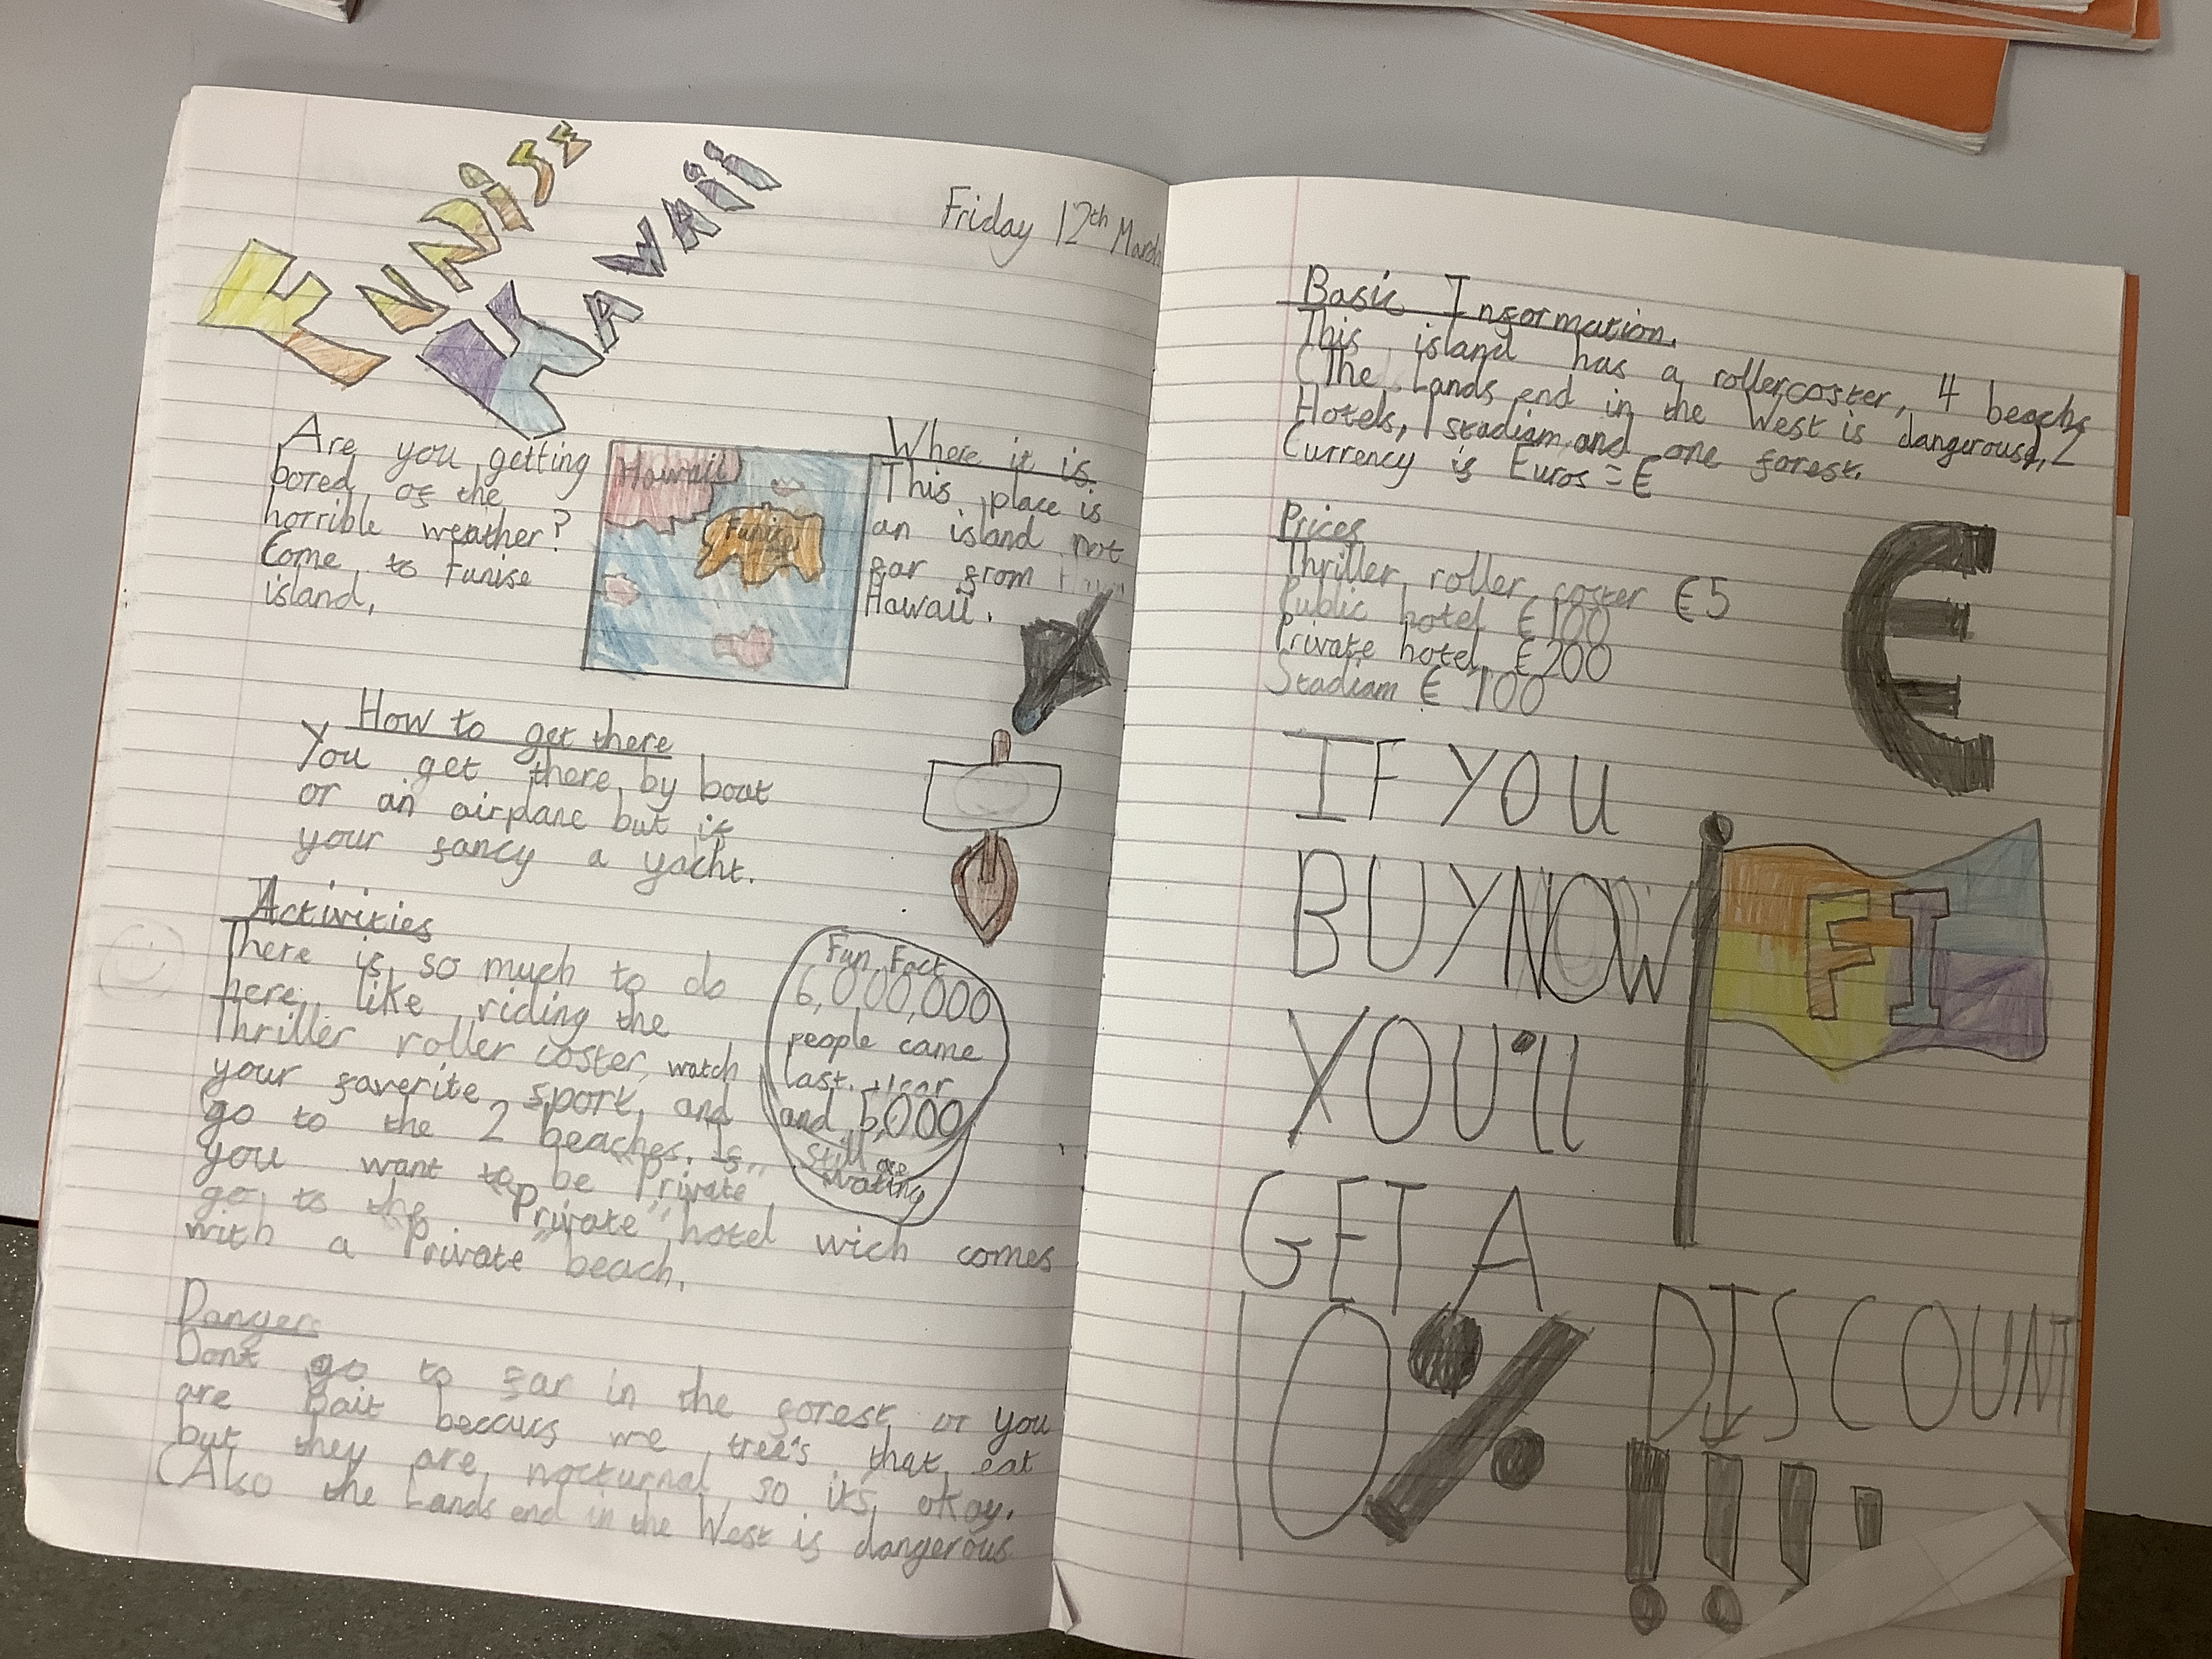 FUNiSE
HAWAii
Friday 12th March
Are you getting
bored of the
horrible weather?
Come to Funise
island,
Hawaii
Funise
Where it is
This place is
an island not
far from
Hawaii.
How to get there
You get there by boat
or an airplane but if
your fancy a yacht.
Activities
There is so much to do
here like riding the
Thriller roller coster, watch
your faverite sport, and
go to the 2 beaches. If
you want to be "Private"
go to the "Private" hotel wich comes
with a "Private" beach.
Fun Fact
6,000,000
people came
last year
and 5,000
still are
waiting
Dangers
Dont go to far in the forest or you
are bait becaus we tree's that eat
but they are nocturnal so its okay.
(Also the Lands end in the West is dangerous
Basic Information.
This island has a rollercoster, 4 beachs
(The Lands end in the West is dangerous), 2
Hotels, 1 stadiam and one forest.
Currency is Euros = €
Prices
Thriller roller coster €5
Public hotel €100
Private hotel €200
Stadiam € 100
€
IF YOU
BUY NOW
YOU'll
GET A
10% DISCOUNT
!!!!
FI